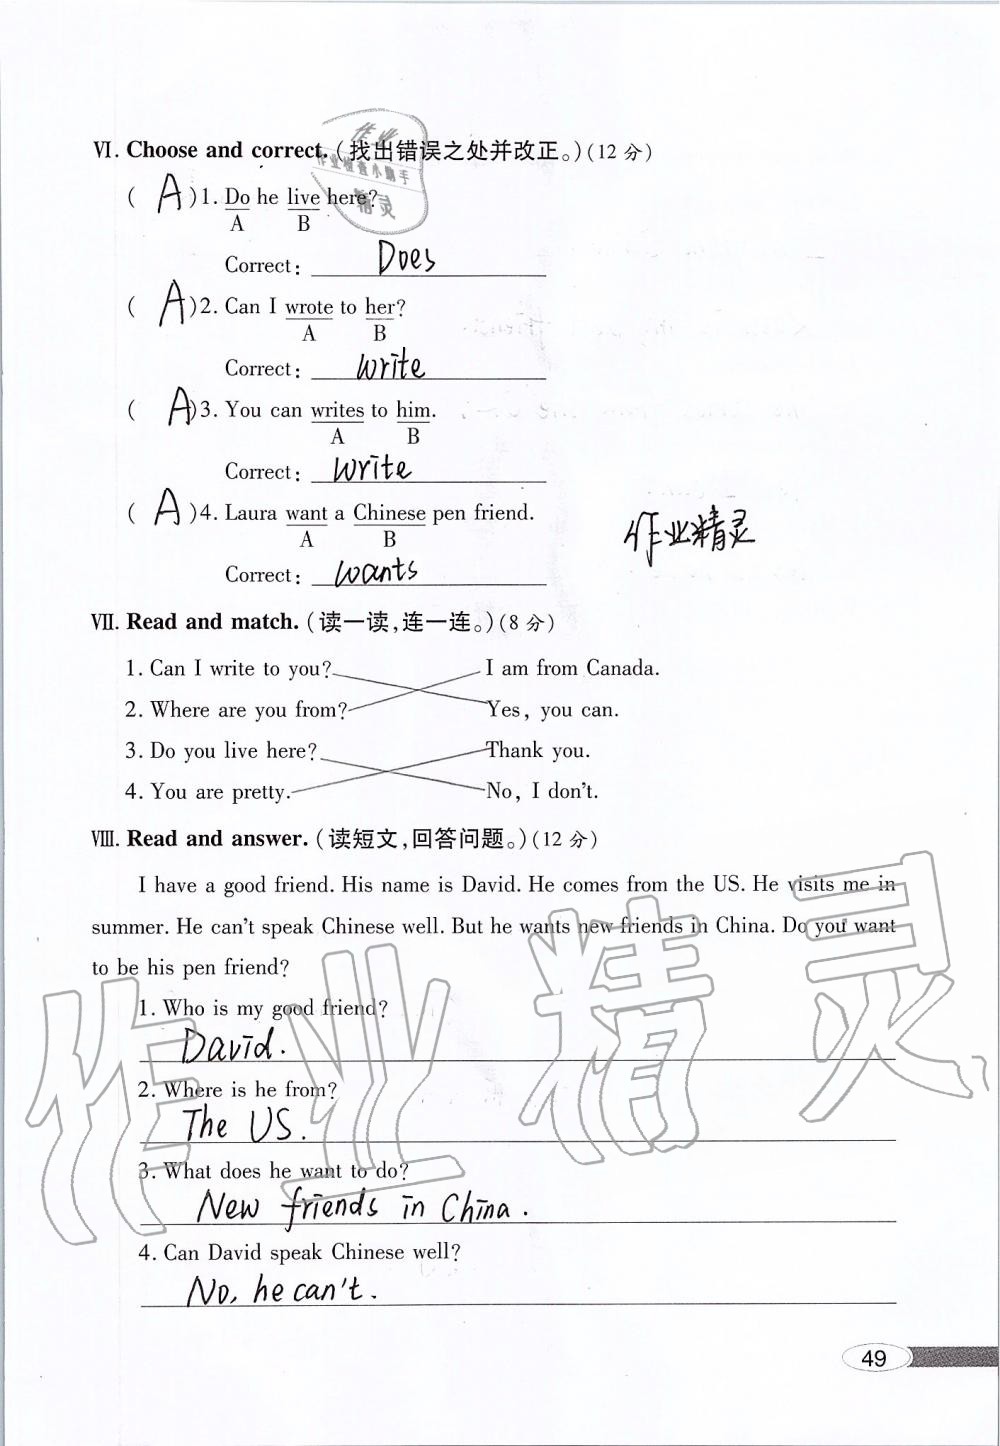 Ⅵ. Choose and correct.(找出错误之处并改正。)(12分)
( A )1. Do he live here?
A B
Correct: Does
( A )2. Can I wrote to her?
A B
Correct: write
( A )3. You can writes to him.
A B
Correct: write
( A )4. Laura want a Chinese pen friend.
A B
Correct: wants
作业精灵
Ⅶ. Read and match.(读一读,连一连。)(8分)
1. Can I write to you? I am from Canada.
2. Where are you from? Yes, you can.
3. Do you live here? Thank you.
4. You are pretty. No, I don't.
Ⅷ. Read and answer.(读短文,回答问题。)(12分)
I have a good friend. His name is David. He comes from the US. He visits me in
summer. He can't speak Chinese well. But he wants new friends in China. Do you want
to be his pen friend?
1. Who is my good friend?
David.
2. Where is he from?
The US.
3. What does he want to do?
New friends in China.
4. Can David speak Chinese well?
No, he can't.
49
作业
作业检查小助手
精灵
作业精灵